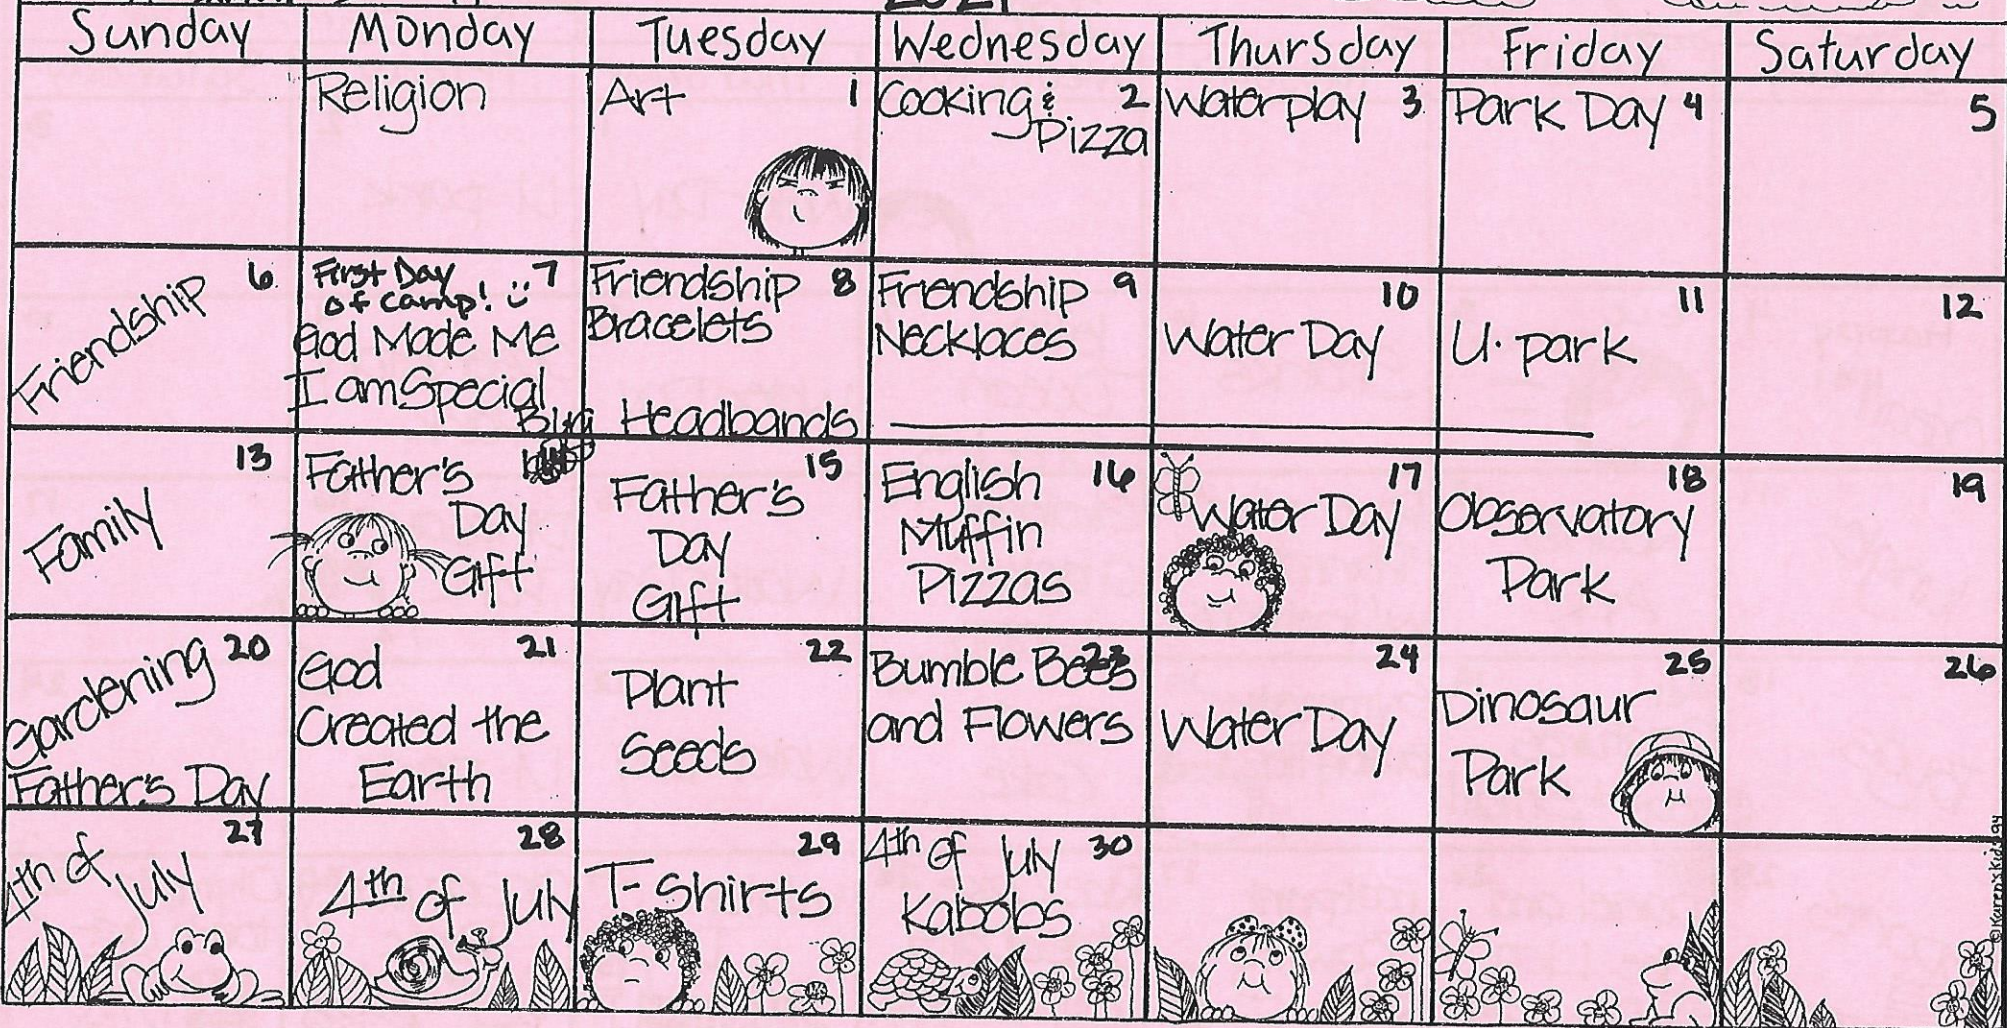 2021
Sunday Monday Tuesday Wednesday Thursday Friday Saturday
Religion
Art 1
Cooking & 2
Pizza
Waterplay 3
Park Day 4
5
Friendship 6
First Day 7
of Camp!
God Made Me
I am Special
Friendship 8
Bracelets
Bug Headbands
Friendship 9
Necklaces
10
Water Day
11
U. park
12
13
Family
Father's
Day
Gift
15
Father's
Day
Gift
English 16
Muffin
Pizzas
17
Water Day
18
Observatory
Park
19
Gardening 20
Father's Day
God 21
Created the
Earth
22
Plant
Seeds
Bumble Bees 23
and Flowers
24
Water Day
25
Dinosaur
Park
26
27
4th of
July
28
4th of July
29
T-Shirts
4th of July 30
Kabobs
© Karen's Kids 94